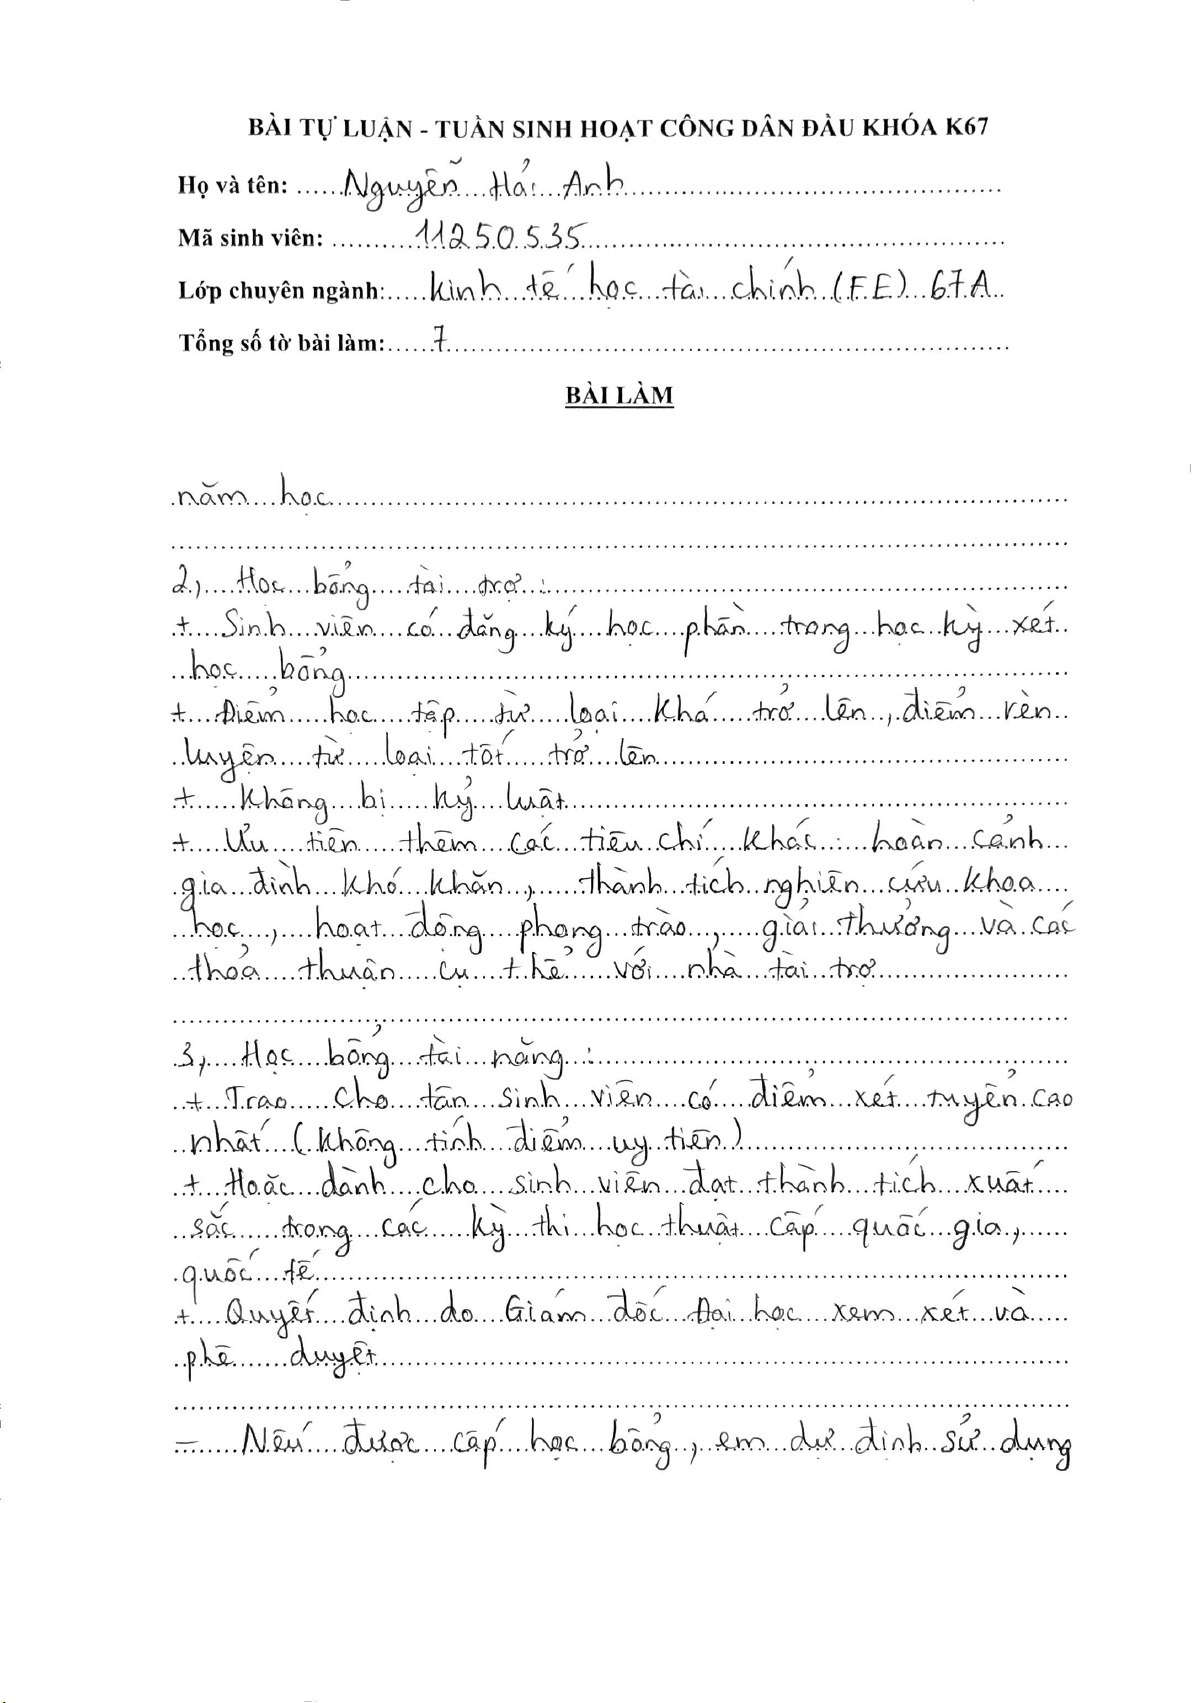 BÀI TỰ LUẬN - TUẦN SINH HOẠT CÔNG DÂN ĐẦU KHÓA K67
Họ và tên: Nguyễn Hải Anh
Mã sinh viên: 11250535
Lớp chuyên ngành: kinh tế học tài chính (FE) 67A
Tổng số tờ bài làm: 7
BÀI LÀM
năm học
2, Học bổng tài trợ :
+ Sinh viên có đăng ký học phần trong học kỳ xét
học bổng
+ Điểm học tập từ loại khá trở lên, điểm rèn
luyện từ loại tốt trở lên
+ Không bị kỷ luật
+ Ưu tiên thêm các tiêu chí khác : hoàn cảnh
gia đình khó khăn, thành tích nghiên cứu khoa
học, hoạt động phong trào, giải thưởng và các
thỏa thuận cụ thể với nhà tài trợ
3, Học bổng tài năng :
+ Trao cho tân sinh viên có điểm xét tuyển cao
nhất (không tính điểm uy tiên)
+ Hoặc dành cho sinh viên đạt thành tích xuất
sắc trong các kỳ thi học thuật cấp quốc gia,
quốc tế
+ Quyết định do Giám đốc Đại học xem xét và
phê duyệt
- Nếu được cấp học bổng, em dự định sử dụng